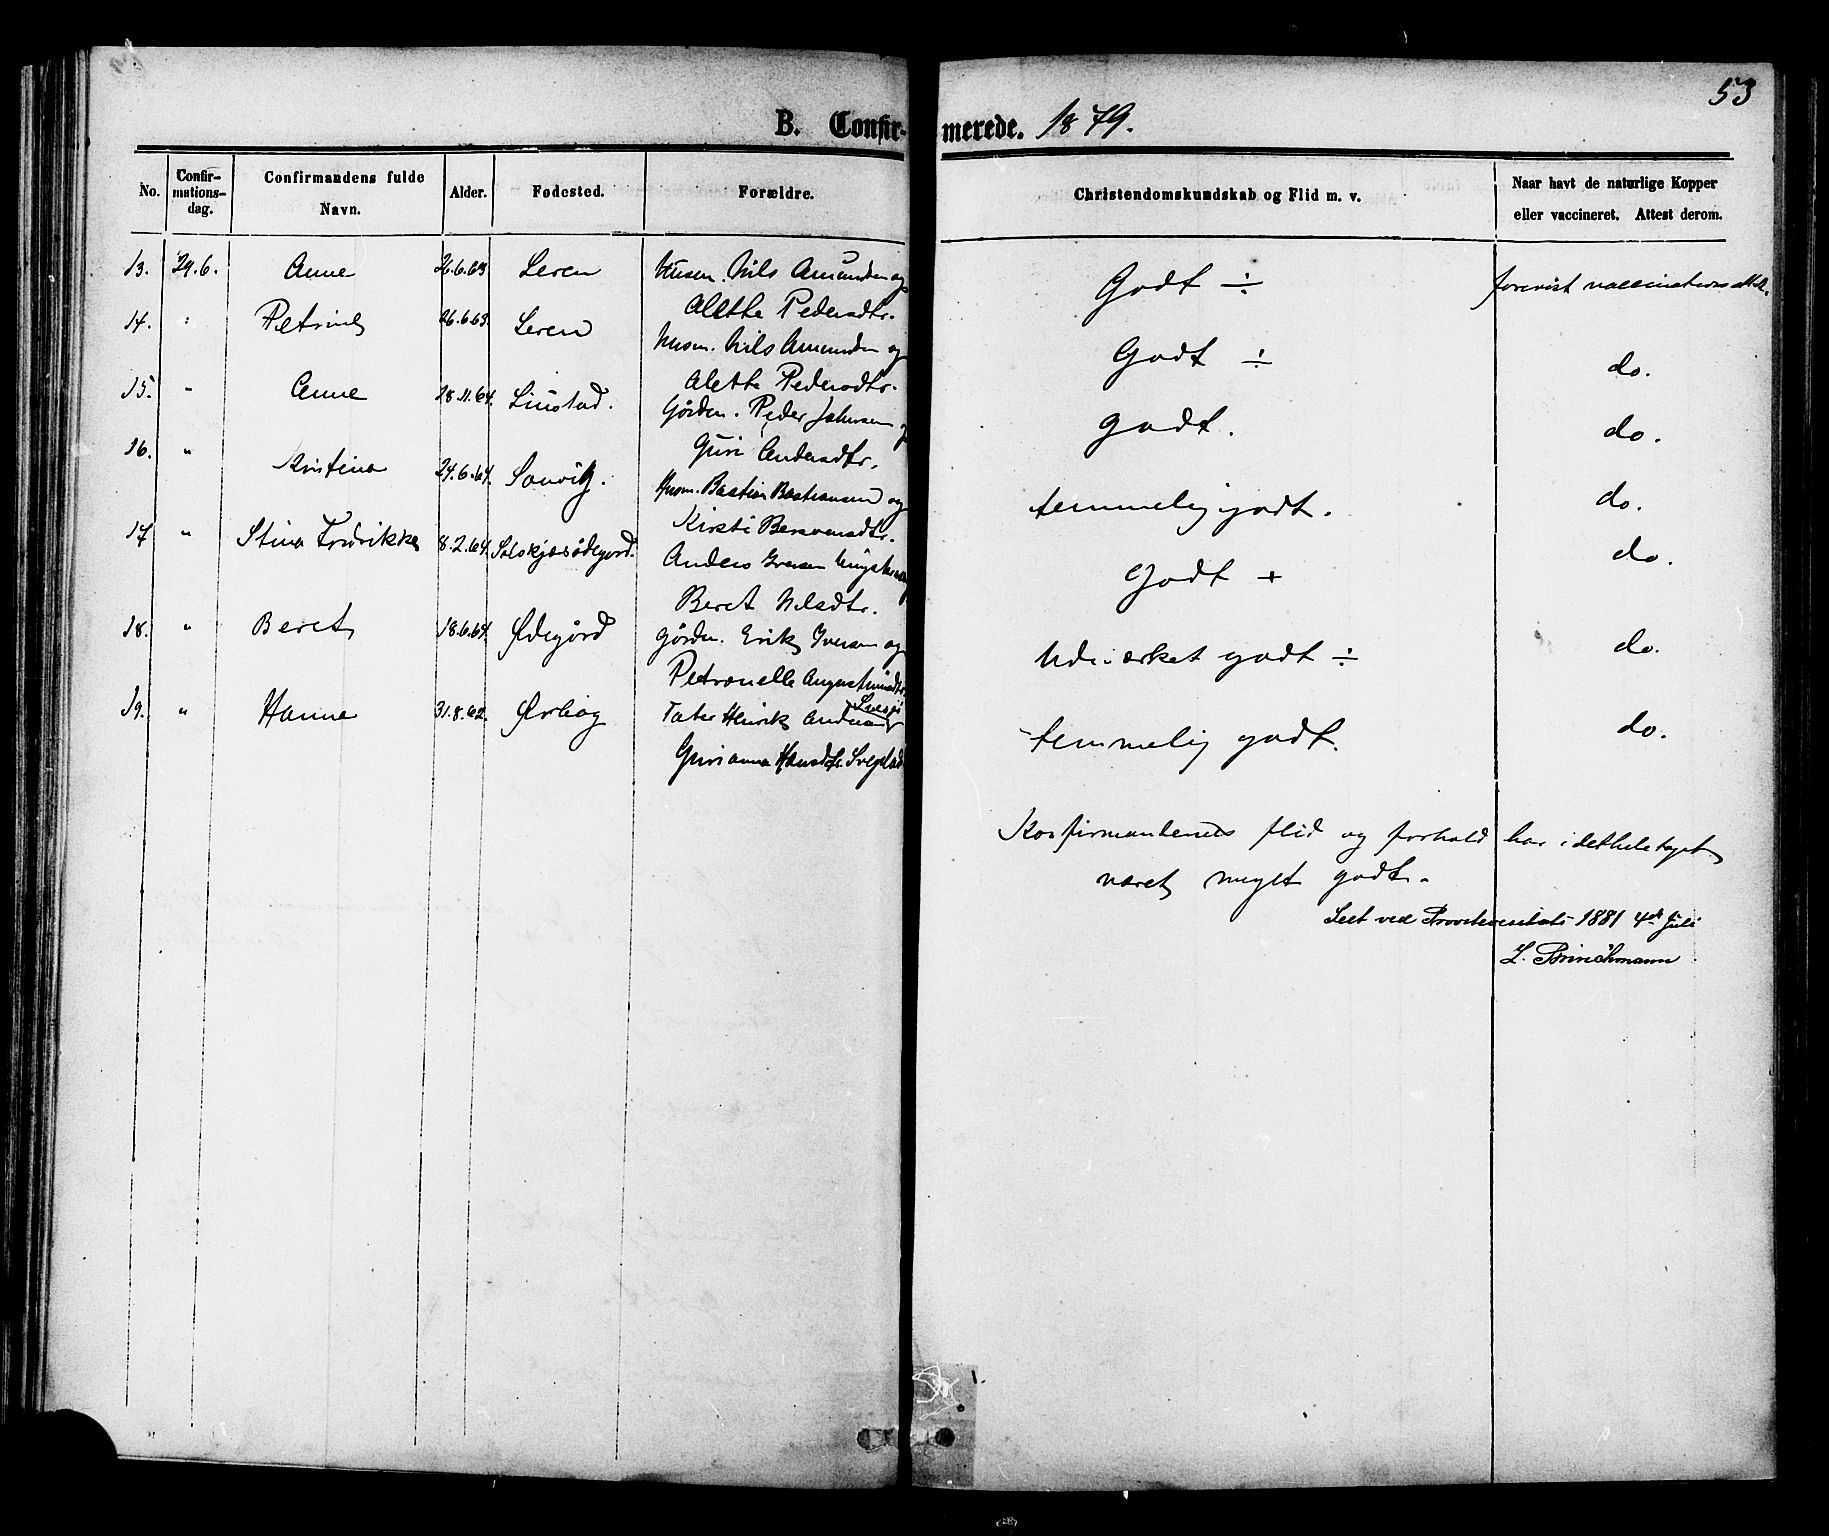 53
B. Confir- merede. 1879.
No. Confir-mations-dag. Confirmandens fulde Navn. Alder. Fødested. Forældre. Christendomskundskab og Flid m. v. Naar havt de naturlige Kopper eller vaccineret. Attest derom.
13. 29.6. Anne 26.6.63. Leren Husm. Nils Amunden og Godt ÷ forevist vaccinationsattest.
Alette Pedersdtr.
14. " Petrine 26.6.63. Leren Husm. Nils Amunden og Godt ÷ do.
Alette Pedersdtr.
15. " Anne 28.11.64. Linstad. Gårdm. Peder Johnsen og godt. do.
Guri Andersdtr.
16. " Kristina 24.6.64. Sanvig. Husm. Bastian Bastiansen og temmelig godt. do.
Kirsti Bersvensdtr.
17 " Stina Fredrikke 8.2.64. Solskjøsødegard. Anders Iversen og Godt + do.
Beret Nilsdtr.
18. " Beret 18.6.64. Ødegård Gårdm. Erik Iversen og Udmærket godt ÷ do.
Petronelle Augustinusdtr.
19. " Hanne 31.8.62. Ørbog Tater Henrik Andreas temmelig godt. do.
Gurianna Hansdtr.
Konfirmandernes flid og forhold har i det hele taget
været meget godt.
Seet ved Provstevisitats 1881 4de Juli
L. Brinchmann